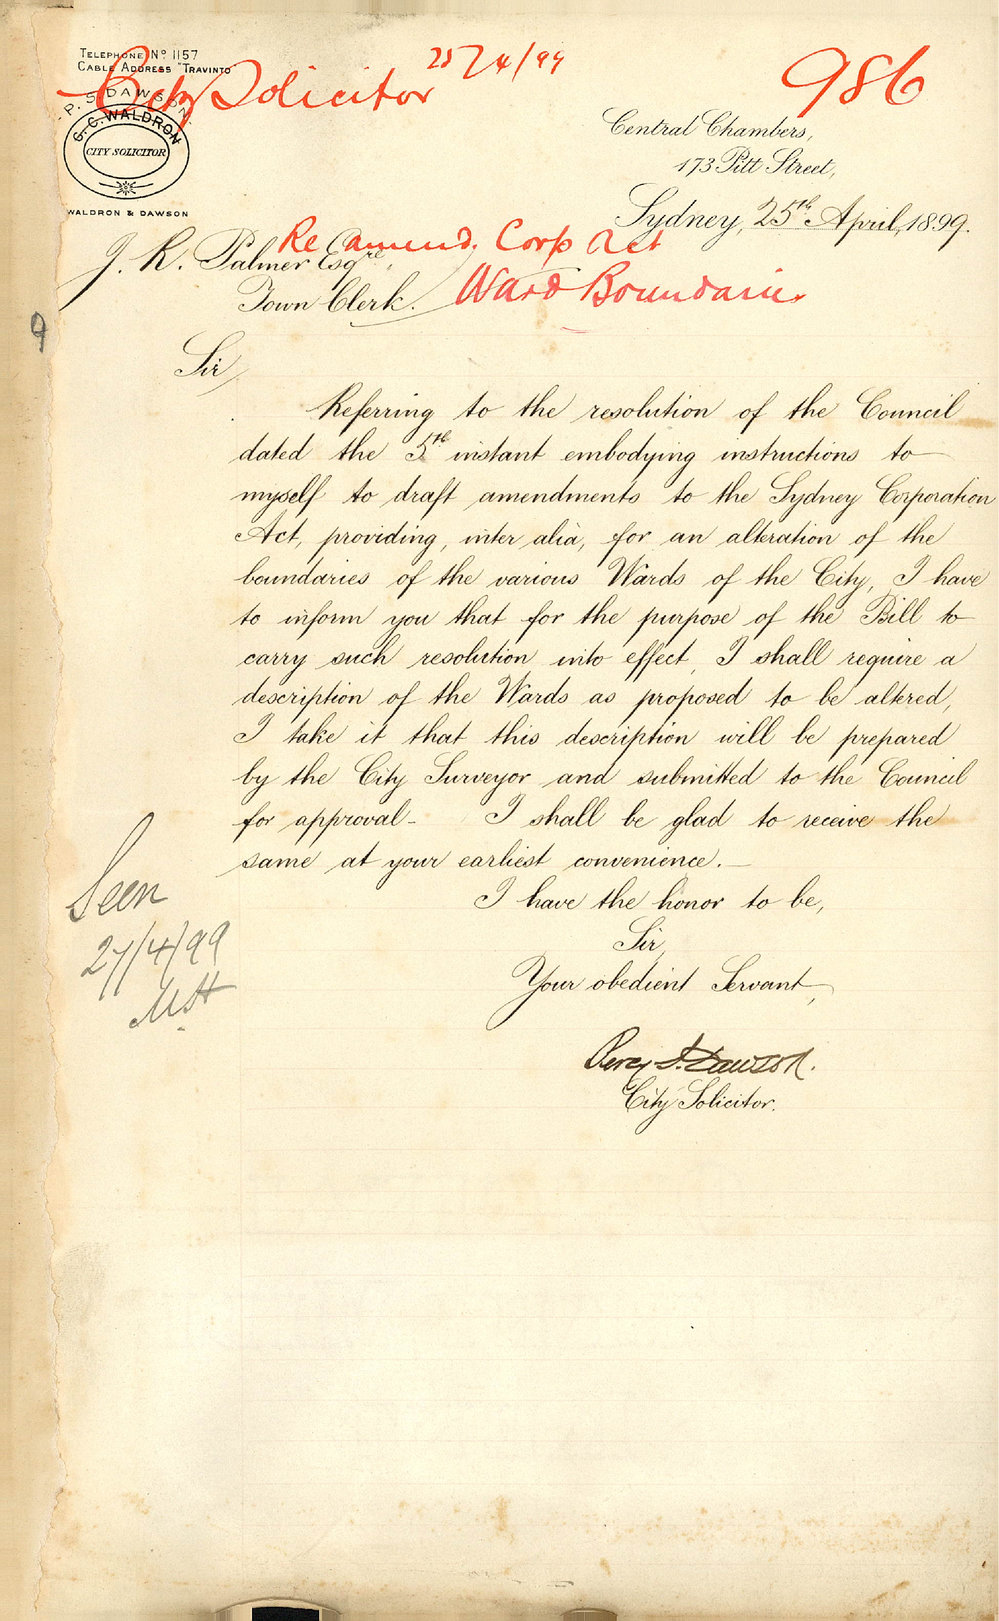 TELEPHONE No 1157
CABLE ADDRESS "TRAVINTO"
City Solicitor 25/4/99
986
P. S. DAWSON
G. C. WALDRON
CITY SOLICITOR
WALDRON & DAWSON
Central Chambers,
173 Pitt Street,
Sydney, 25th April, 1899.
Re amend. Corp Act
Ward Boundarie.
J. R. Palmer Esqre,
Town Clerk.
9
Sir,
Referring to the resolution of the Council
dated the 5th instant embodying instructions to
myself to draft amendments to the Sydney Corporation
Act, providing, inter alia, for an alteration of the
boundaries of the various Wards of the City, I have
to inform you that for the purpose of the Bill to
carry such resolution into effect, I shall require a
description of the Wards as proposed to be altered,
I take it that this description will be prepared
by the City Surveyor and submitted to the Council
for approval - I shall be glad to receive the
same at your earliest convenience. -
I have the honor to be,
Sir,
Your obedient Servant,
Percy S. Dawson.
City Solicitor.
Seen
27/4/99